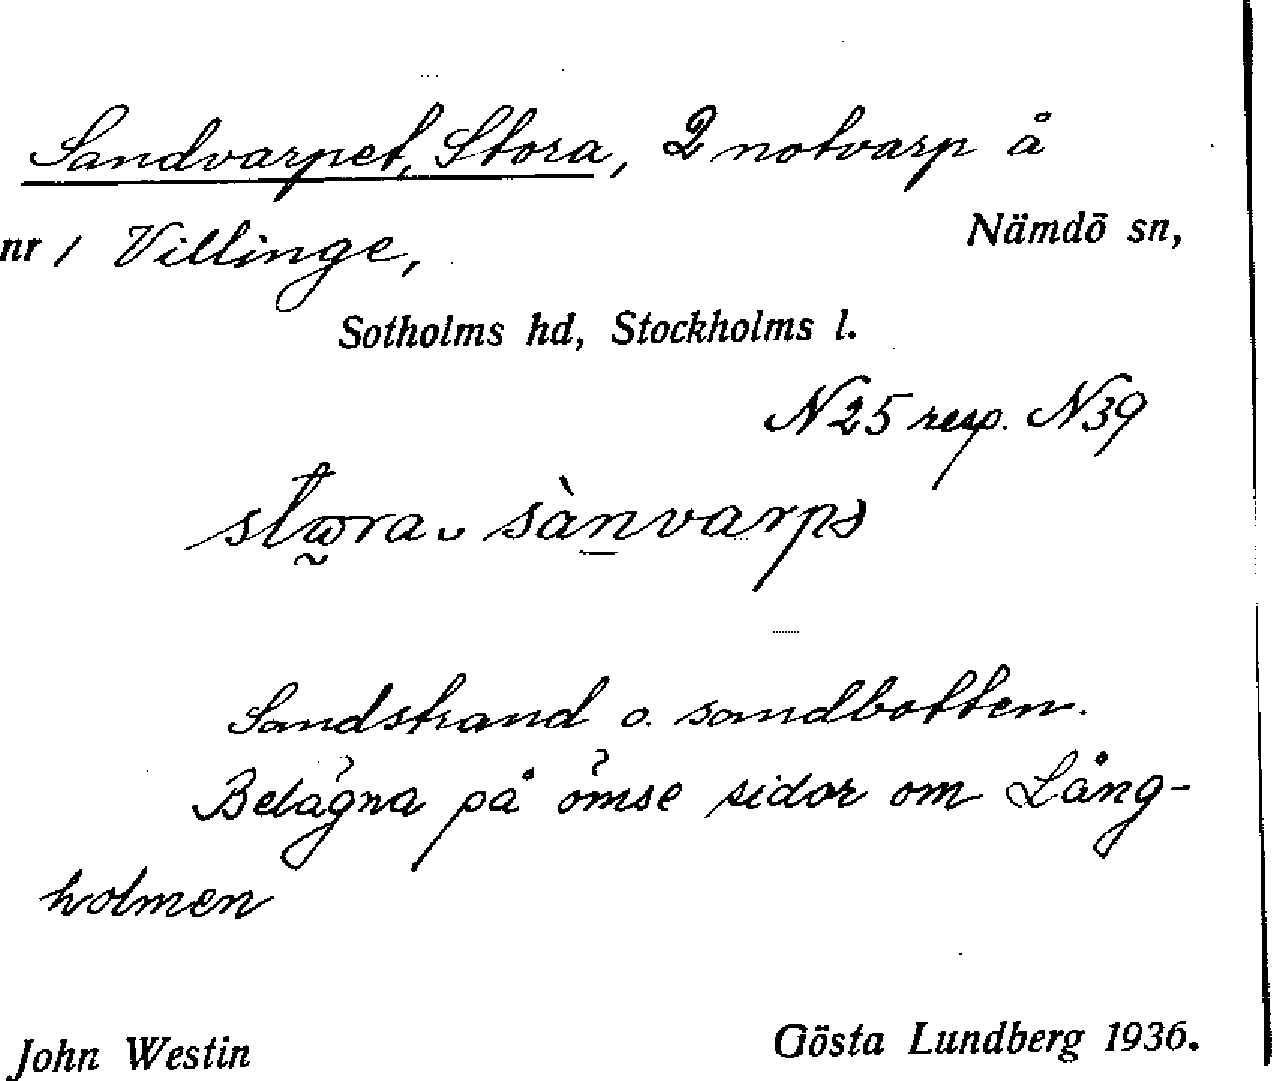 Sandvarpet, Stora, 2 notvarp å
nr 1 Villinge,
Nämdö sn,
Sotholms hd, Stockholms l.
N25 resp. N39
Sandstrand o. sandbotten.
Belägna på ömse sidor om Lång-
holmen
John Westin
Gösta Lundberg 1936.